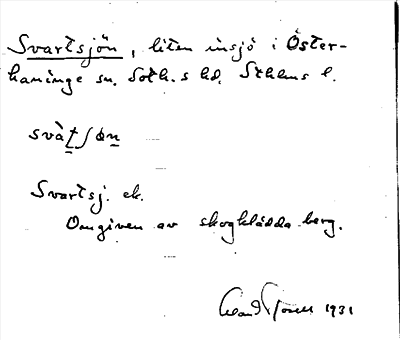 Svartsjön, liten insjö i Öster-
haninge sn. Soth.s hd. Sthlms l.
svàtʃøn
Svartsj. ek.
Omgiven av skogklädda berg.
1931